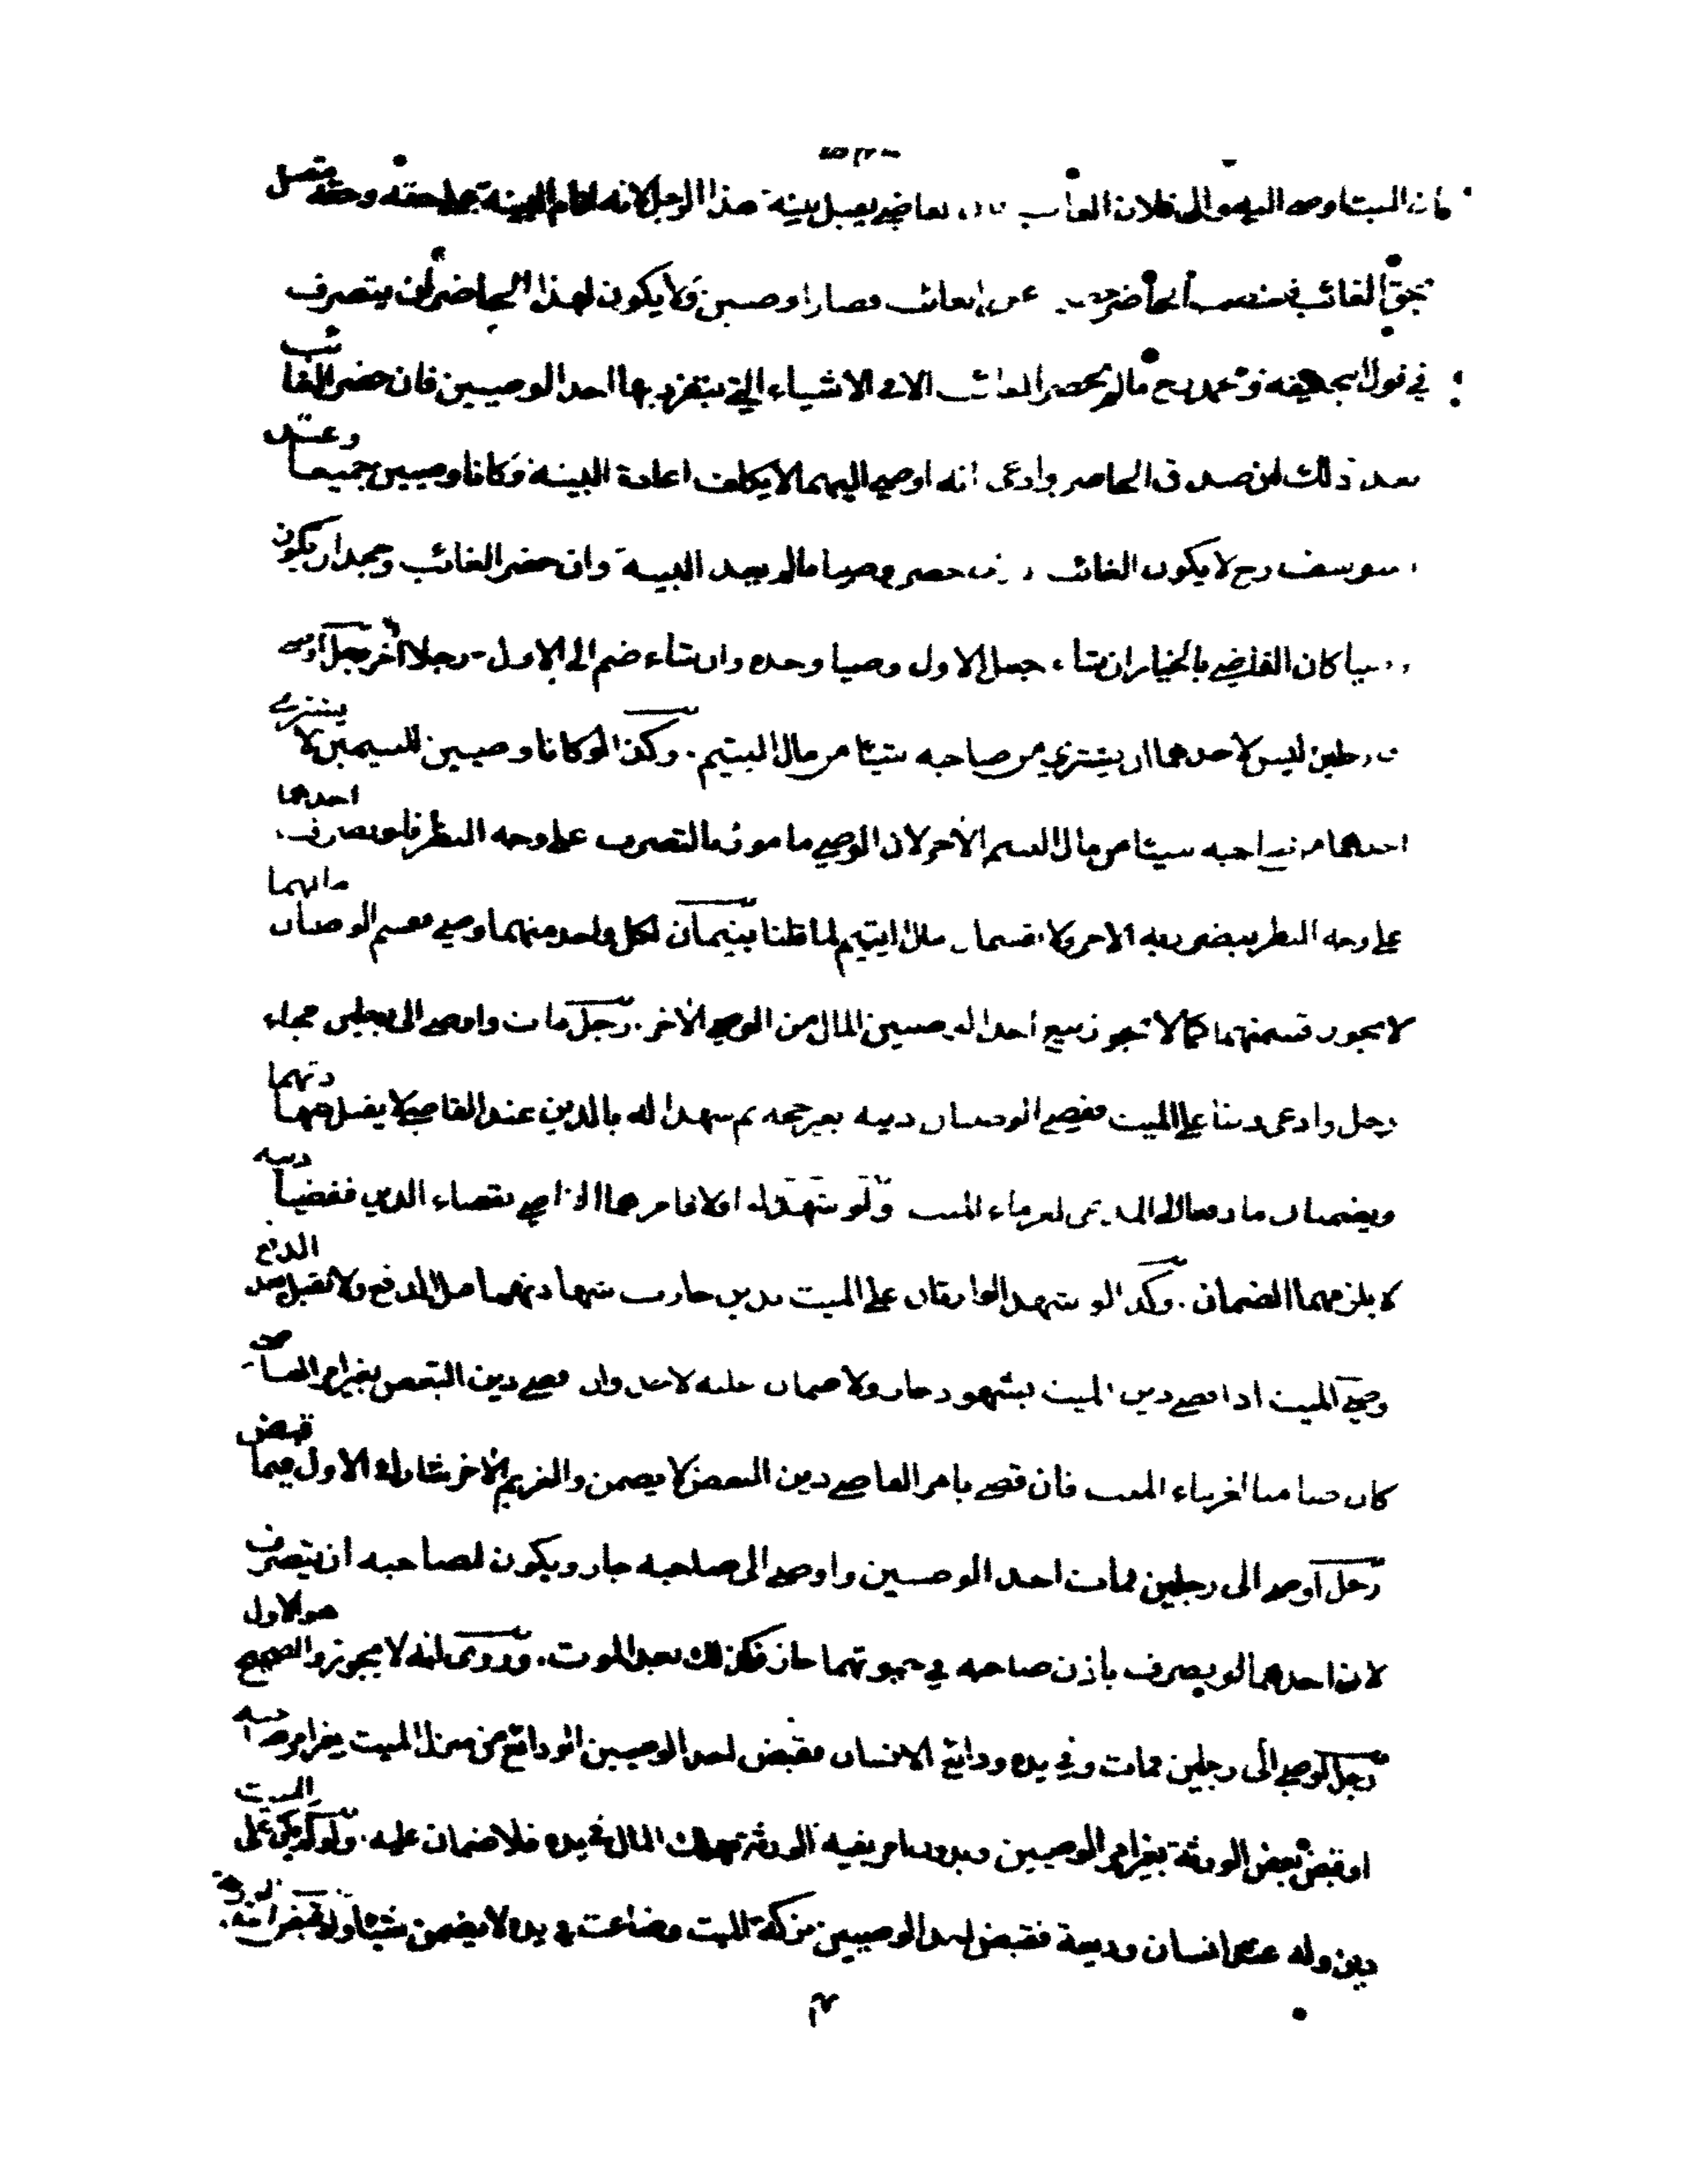 بان الميت اوصى اليه والى فلان الغائب القاضي يقبل بينة هذا الرجل لانه اقام البينة على حقه وحقه متصل
بحق الغائب فينتصب الحاضر عن الغائب فصارا وصيين ولا يكون لهذا الحاضر ان يتصرف
في قول ابي حنيفة ومحمد رح مالم يحضر الغائب الا في الاشياء التي يتفرد بها احد الوصيين فان حضر الغائب
بعد ذلك ان صدق الحاضر وادعى انه اوصى اليهما لا يكلف اعادة البينة وكانا وصيين جميعا وعند
يوسف رح لا يكون الغائب حضر وصيا مالم يعد البينة وان حضر الغائب وجحد ان يكون
وصيا كان القاضي بالخيار ان شاء جعل الاول وصيا وحده وان شاء ضم الى الاول رجلا آخر رجل اوصى
رجلين ليس لاحدهما ان يشتري من صاحبه شيئا من مال اليتيم . وكذا لو كانا وصيين لليتيمين لا يشتري
احدهما من صاحبه شيئا من مال اليتيم الآخر لان الوصي مامور بالتصرف على وجه النظر فلو تصرف احدهما
على وجه النظر يتضرر به الآخر ولا يقسمان مال اليتيم لما قلنا يتيمان لكل واحد منهما وصي فقسم الوصيان مالهما
لا يجوز قسمتهما كما لا يجوز بيع احد الوصيين المال من الوصي الآخر . رجل مات واوصى الى رجلين فجاء
رجل وادعى دينا على الميت فقضى الوصيان دينه بغير حجة ثم شهدا له بالدين عند القاضي لا يقبل شهادتهما
ويضمنان ما دفعا الى المدعي لغرماء الميت ولو شهدا له اولا فامرهما القاضي بقضاء الدين فقضيا دينه
لا يلزمهما الضمان . وكذا لو شهد الوارثان على الميت بدين جازت شهادتهما قبل الدفع ولا تقبل بعد الدفع
وصي الميت اذا قضى دين الميت بشهود جاز ولا ضمان عليه لاحد وان قضى دين البعض بغير امر القاضي
كان ضامنا لغرماء الميت فان قضى بامر القاضي دين البعض لا يضمن والغريم الآخر يشارك الاول فيما قبض
رجل اوصى الى رجلين فمات احد الوصيين واوصى الى صاحبه جاز ويكون لصاحبه ان يتصرف
لان احدهما لو تصرف باذن صاحبه في حيوتهما جاز فكذلك بعد الموت . وروى انه لا يجوز والصحيح هو الاول
رجل اوصى الى رجلين فمات وفي يده ودائع لانسان فقبض احد الوصيين الودائع من منزل الميت بغير امر صاحبه
او قبض بعض الورثة بغير امر الوصيين وبدون امر بقية الورثة فهلك المال في يده فلا ضمان عليه . ولو لم يكن على الميت
دين وله عند انسان وديعة فقبض احد الوصيين تركة الميت فضاعت في يده لا يضمن شيئا ولو قبض احد الورثة